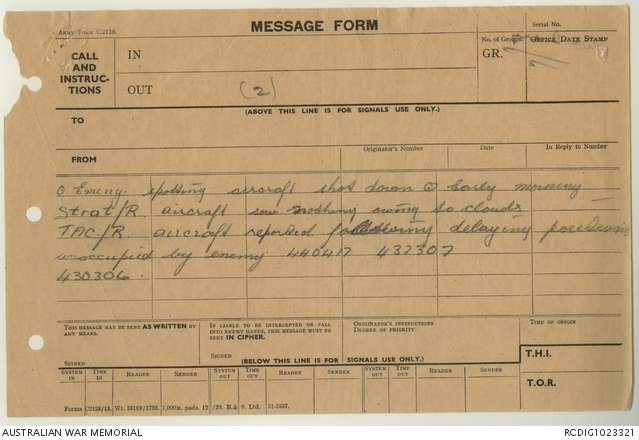 Army Form C2128.
MESSAGE FORM
Serial No.
CALL AND INSTRUC-TIONS
IN
No. of Groups
GR.
OFFICE DATE STAMP
OUT
(2)
(ABOVE THIS LINE IS FOR SIGNALS USE ONLY.)
TO
FROM
Originator's Number
Date
In Reply to Number
Enemy spotting aircraft shot down Early morning
Strat/R aircraft saw nothing owing to clouds
TAC/R. aircraft reported following delaying positions
unoccupied by enemy 440417 432307
430306.
THIS MESSAGE MAY BE SENT AS WRITTEN BY ANY MEANS.
SIGNED
IF LIABLE TO BE INTERCEPTED OR FALL INTO ENEMY HANDS, THIS MESSAGE MUST BE SENT IN CIPHER.
SIGNED
ORIGINATOR'S INSTRUCTIONS
DEGREE OF PRIORITY.
TIME OF ORIGIN
(BELOW THIS LINE IS FOR SIGNALS USE ONLY.)
T.H.I.
T.O.R.
SYSTEM IN
TIME IN
READER
SENDER
SYSTEM OUT
TIME OUT
READER
SENDER
SYSTEM OUT
TIME OUT
READER
SENDER
AUSTRALIAN WAR MEMORIAL
RCDIG1023321